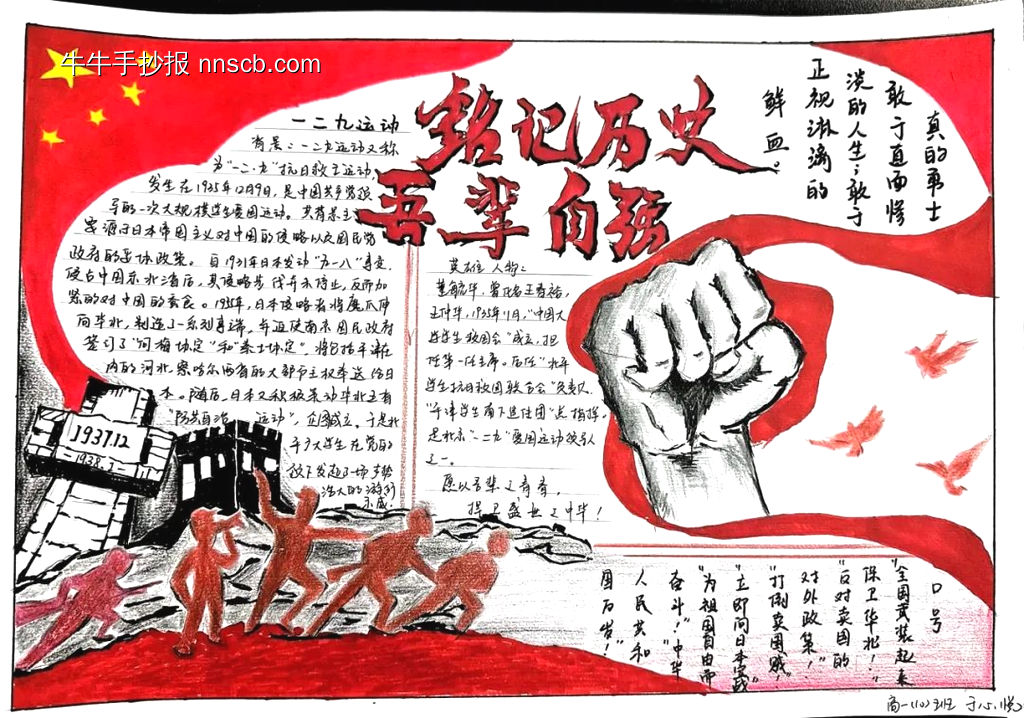 牛牛手抄报 nnscb.com
铭记历史
吾辈自强
真的勇士
敢于直面惨
淡的人生；敢于
正视淋漓的
鲜血。
一二九运动
背景：一二九运动又称
为“一二·九”抗日救亡运动，
发生在1935年12月9日，是中国共产党领
导的一次大规模学生爱国运动。其背景主
要源于日本帝国主义对中国的侵略以及国民党
政府的妥协政策。自1931年日本发动“九一八”事变，
侵占中国东北诸省后，其侵略步伐并未停止，反而加
紧的对中国的蚕食。1935年，日本侵略者将魔爪伸
向华北，制造了一系列事端。并迫使南京国民政府
签订了“何梅协定”和“秦土协定”，将包括平津在
内的河北察哈尔两省的大部市主权奉送给日
本。随后，日本又积极策动华北五省
“防共自治 运动”，企图成立。于是北
平大学生在党的
发起了一场声势
浩大的游行
示威。
英雄人物：
董毓华，曾化名王春裕，
王仲华，1935年11月，“中国大
学学生救国会”成立，担
任第一任主席。历任“北平
学生抗日救国联合会”负责人，
“平津学生南下宣传团”总指挥。
是北京“一二九”爱国运动领导人
之一。
愿以吾辈之青春，
捍卫盛世之中华！
193712
1938.
口号
“全国武装起来
保卫华北！”
“反对卖国的
对外政策！”
“打倒卖国贼！”
“立即向日本宣战”
“为祖国自由而
奋斗！”“中华
人民共和
国万岁！”
高一(10)班 于心悦